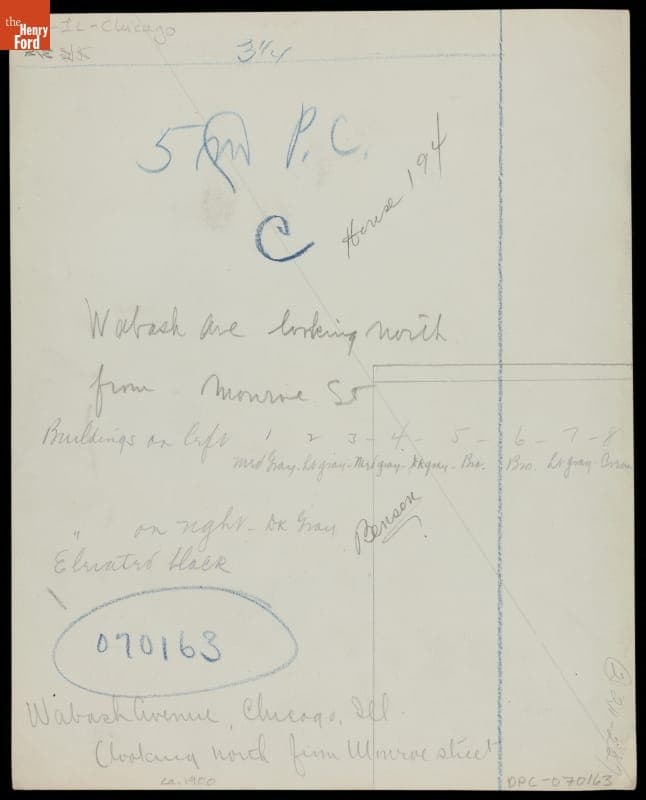 the
Henry
Ford
IL-Chicago
3 1/4
P. C.
C
House 194
Wabash Ave looking north
from Monroe St
Buildings on left 1 2 3 - 4 - 5 - 6 - 7 - 8
Med Gray - Lt gray - Med gray - Dk gray - Bro. Bro. Lt gray
" on right - Dk Gray
Benson
Elevated black
070163
Wabash Avenue, Chicago, Ill.
(looking north from Monroe street
ca. 1900
DPC-070163